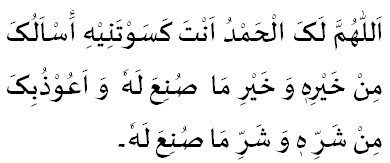 اَللّٰهُمَّ لَکَ الْحَمْدُ اَنْتَ کَسَوْتَنِیْهِ أَسْاَلُکَ
مِنْ خَیْرِهٖ وَ خَیْرِ مَا صُنِعَ لَهٗ وَ اَعُوْذُبِکَ
مِنْ شَرِّهٖ وَ شَرِّ مَا صُنِعَ لَهٗ۔